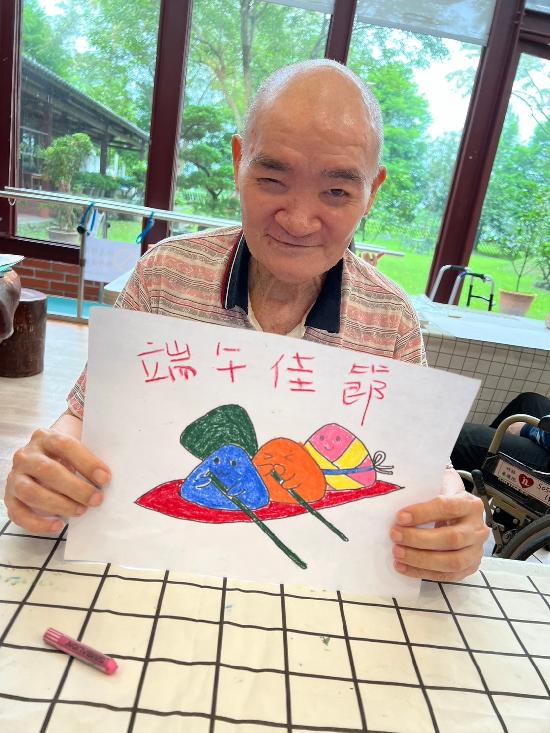 端午佳節